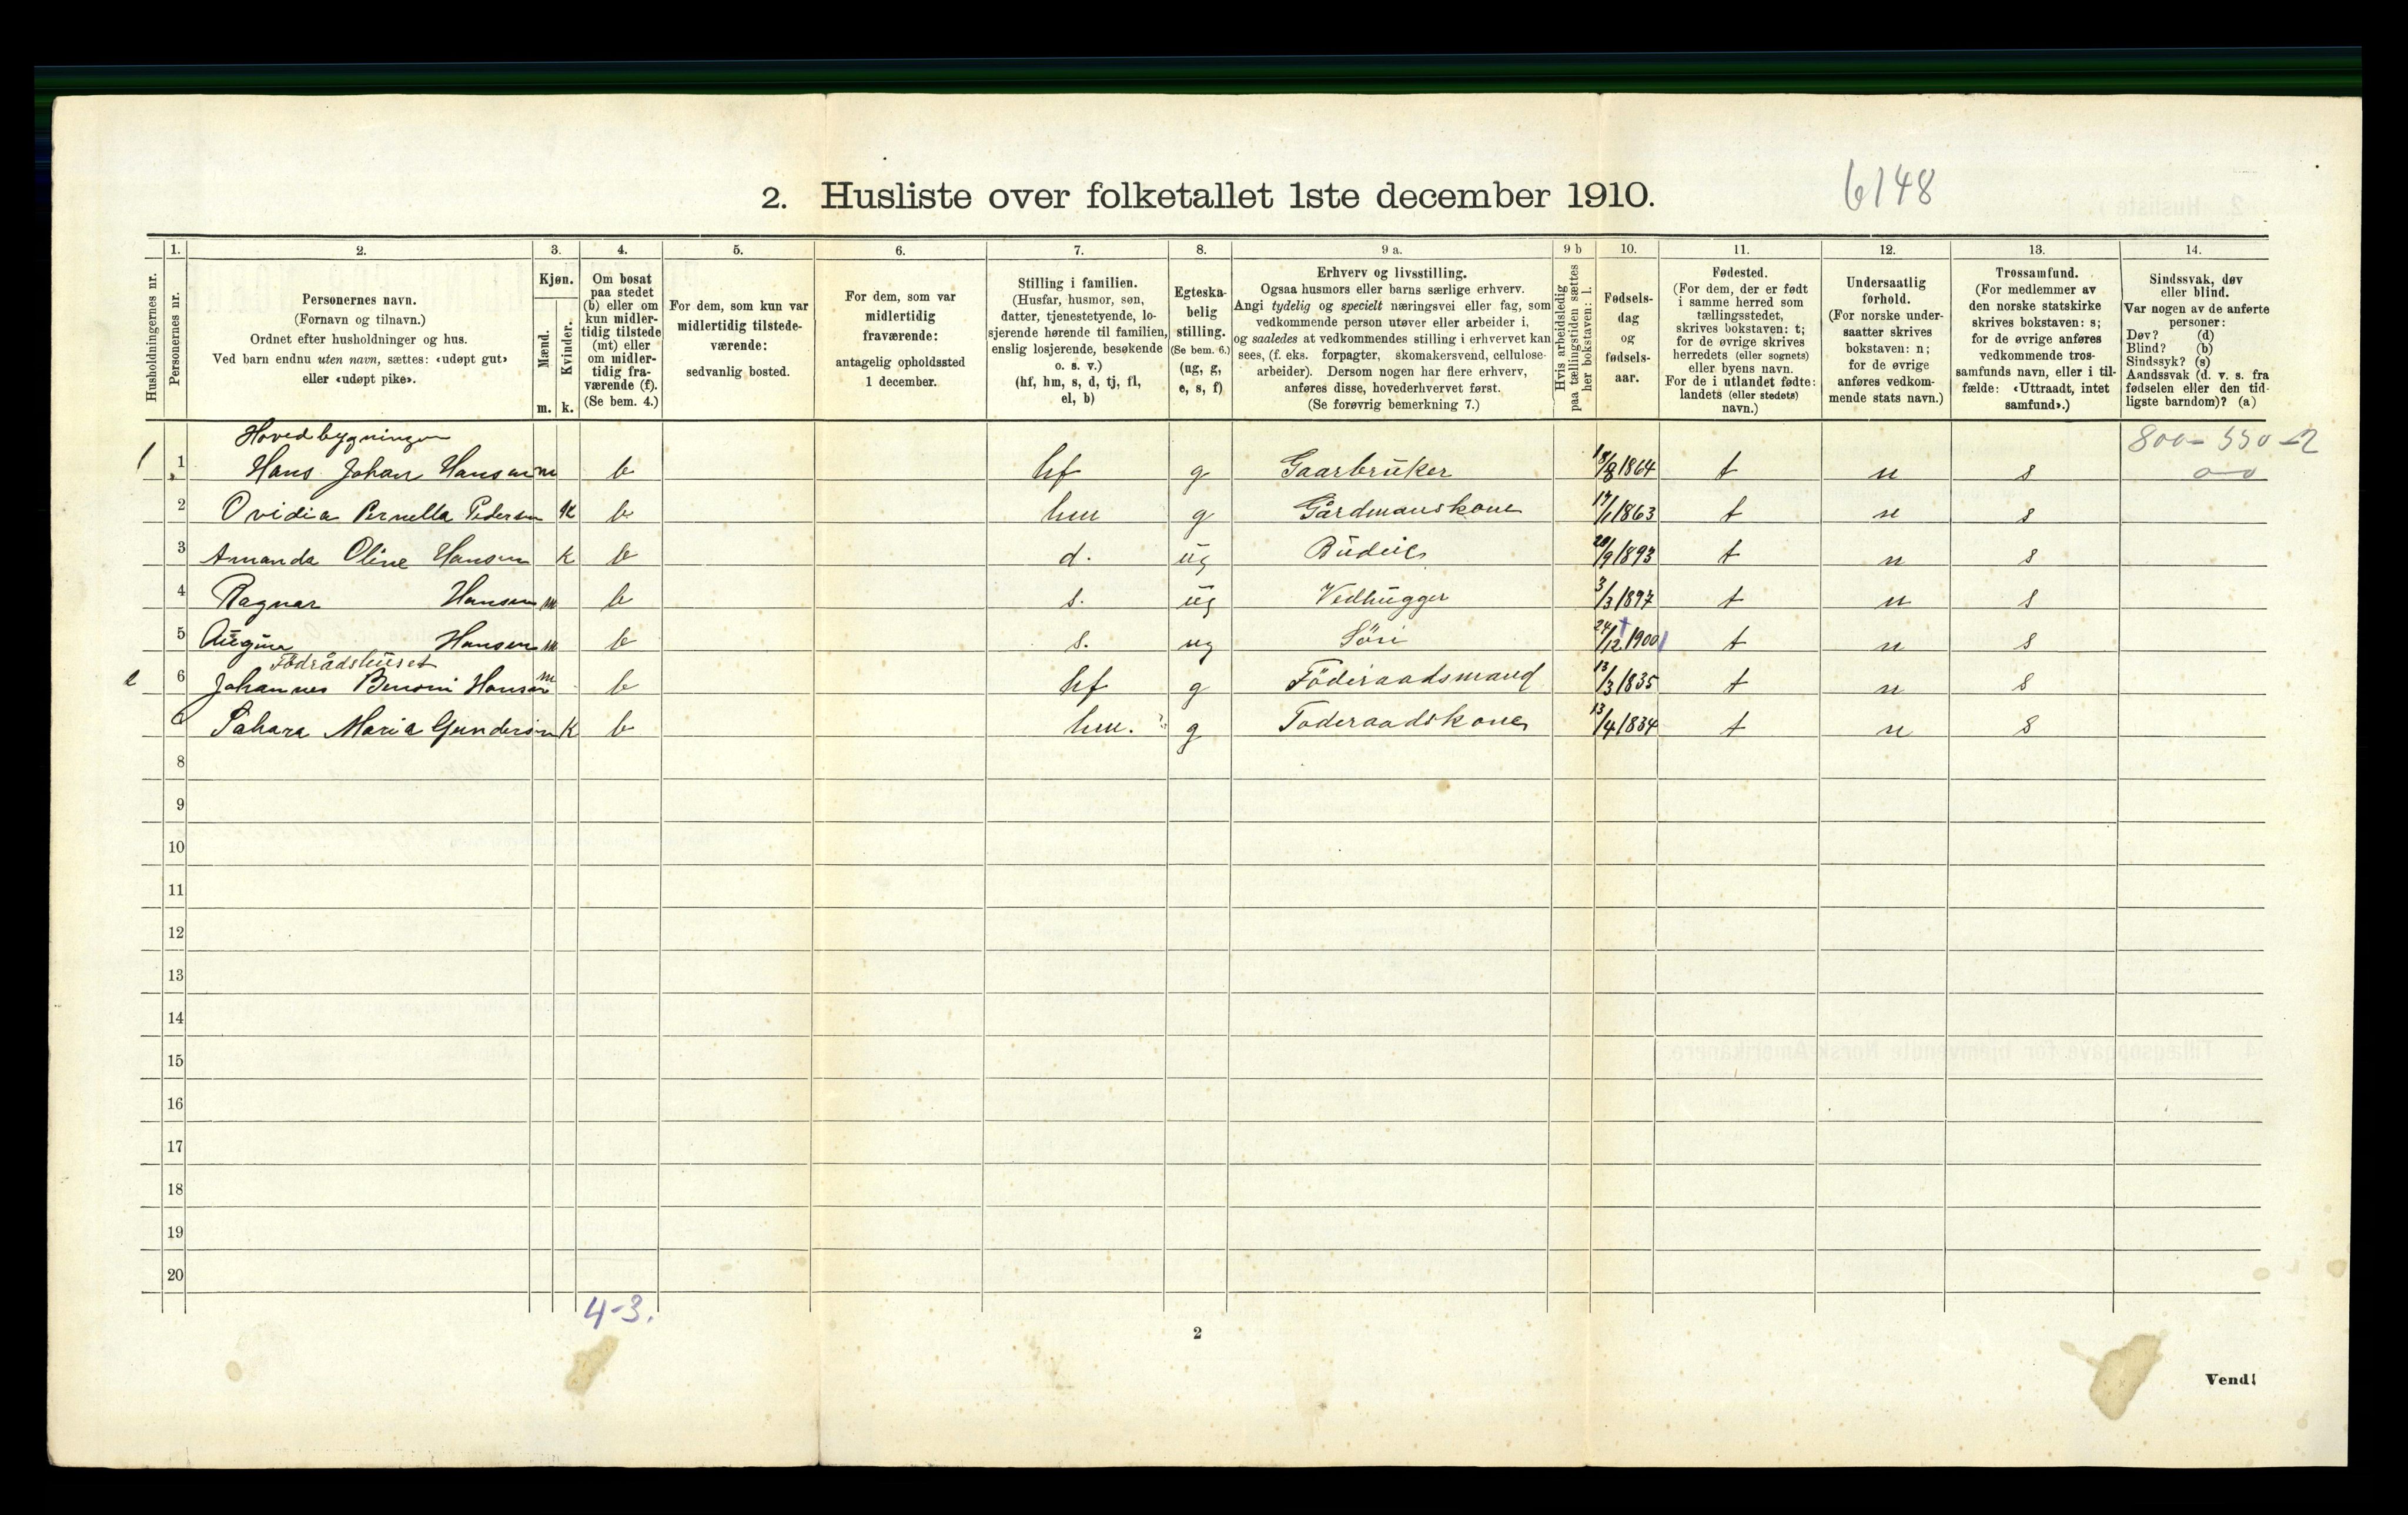 2. Husliste over folketallet 1ste december 1910.
6148
Husholdningernes nr.
1.
Personernes nr.
2.
Personernes navn.
(Fornavn og tilnavn.)
Ordnet efter husholdninger og hus.
Ved barn endnu uten navn, sættes: «udøpt gut»
eller «udøpt pike».
3.
Kjøn.
Mænd.
Kvinder.
m. k.
4.
Om bosat
paa stedet
(b) eller om
kun midler-
tidig tilstede
(mt) eller
om midler-
tidig fra-
værende (f).
(Se bem. 4.)
5.
For dem, som kun var
midlertidig tilstede-
værende:
sedvanlig bosted.
6.
For dem, som var
midlertidig
fraværende:
antagelig opholdssted
1 december.
7.
Stilling i familien.
(Husfar, husmor, søn,
datter, tjenestetyende, lo-
sjerende hørende til familien,
enslig losjerende, besøkende
o. s. v.)
(hf, hm, s, d, tj, fl,
el, b)
8.
Egteska-
belig
stilling.
(Se bem. 6.)
(ug, g,
e, s, f)
9 a.
Erhverv og livsstilling.
Ogsaa husmors eller barns særlige erhverv.
Angi tydelig og specielt næringsvei eller fag, som
vedkommende person utøver eller arbeider i,
og saaledes at vedkommendes stilling i erhvervet kan
sees, (f. eks. forpagter, skomakersvend, cellulose-
arbeider). Dersom nogen har flere erhverv,
anføres disse, hovederhvervet først.
(Se forøvrig bemerkning 7.)
9 b
Hvis arbeidsledig
paa tællingstiden sættes
her bokstaven: l.
10.
Fødsels-
dag
og
fødsels-
aar.
11.
Fødested.
(For dem, der er født
i samme herred som
tællingsstedet,
skrives bokstaven: t;
for de øvrige skrives
herredets (eller sognets)
eller byens navn.
For de i utlandet fødte:
landets (eller stedets)
navn.)
12.
Undersaatlig
forhold.
(For norske under-
saatter skrives
bokstaven: n;
for de øvrige
anføres vedkom-
mende stats navn.)
13.
Trossamfund.
(For medlemmer av
den norske statskirke
skrives bokstaven: s;
for de øvrige anføres
vedkommende tros-
samfunds navn, eller i til-
fælde: «Uttraadt, intet
samfund».)
14.
Sindssvak, døv
eller blind.
Var nogen av de anførte
personer:
Døv? (d)
Blind? (b)
Sindssyk? (s)
Aandssvak (d. v. s. fra
fødselen eller den tid-
ligste barndom)? (a)
Hovedbygningen
800- 550
1 1 Hans Johan Hansen m b hf g Gaarbrüker 18/8 1864 t n s
2 Ovidia Pernella Pedersen k b hm g Gårdmanskone 17/1 1863 t n s
3 Amanda Oline Hansen k b d. üg Büdeie 20/9 1893 t n s
4 Ragnar Hansen m b s. üg Vedhügger 3/3 1897 t n s
5 Hansen m b s. ug Sön 24/12 1900 t n s
Födrådshüset
2 6 Johannes Benoni Hansen m b hf g Föderaadsmand 13/3 1835 t n s
Sahara Maria Gundersen k b hm. g Foderaadskone 13/4 1834 t n s
8
9
10
11
12
13
14
15
16
17
18
19
20
4-3.
2
Vend!